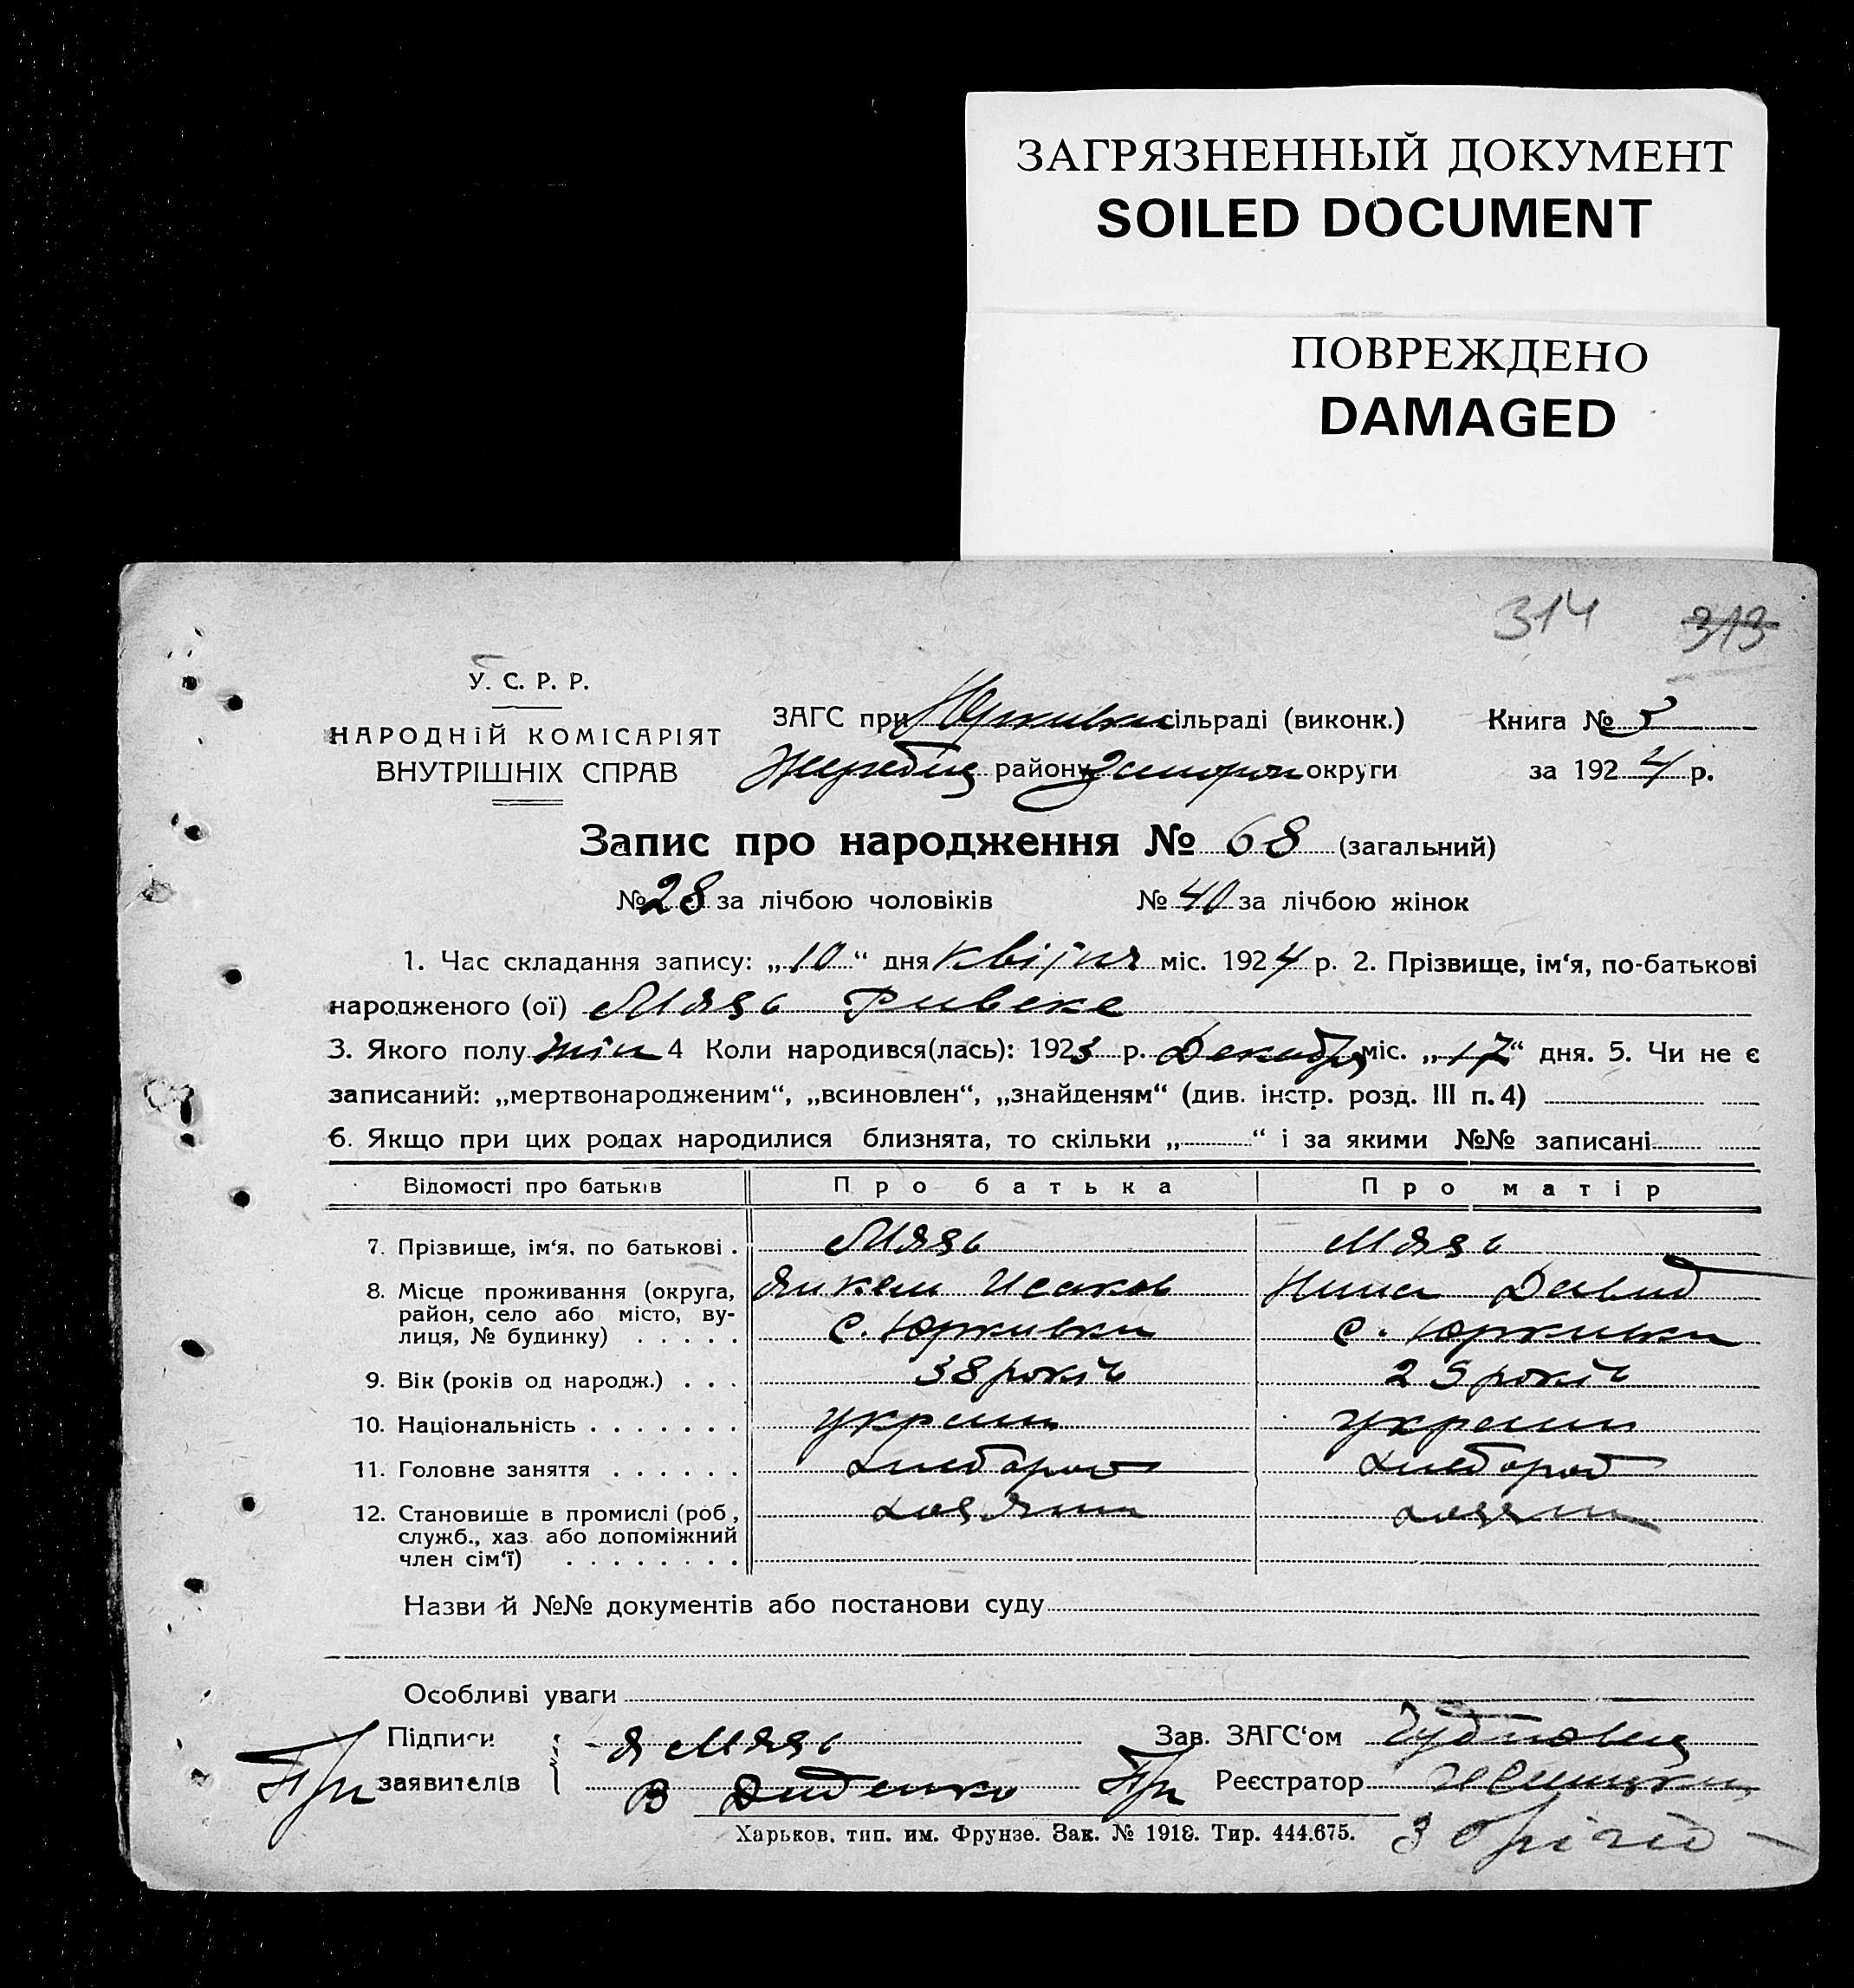 ЗАГРЯЗНЕННЫЙ ДОКУМЕНТ
SOILED DOCUMENT
ПОВРЕЖДЕНО
DAMAGED
314 313
У. С. Р. Р.
НАРОДНІЙ КОМІСАРІЯТ
ВНУТРІШНІХ СПРАВ
ЗАГС при Юркивки сільраді (виконк.) Книга № 5
Жеребец району Запорож округи за 1924 р.
Запис про народження № 68 (загальний)
№ 28 за лічбою чоловіків № 40 за лічбою жінок
1. Час складання запису: „10“ дня квітня міс. 1924 р. 2. Прізвище, ім‘я, по-батькові
народженого (ої) Мязь Ривека
3. Якого полу жін 4 Коли народився(лась): 1923 р. Декабр міс. „17“ дня. 5. Чи не є
записаний: „мертвонародженим“, „всиновлен“, „знайденям“ (див. інстр. розд. III п. 4)
6. Якщо при цих родах народилися близнята, то скільки „ “ і за якими №№ записані
Відомості про батьків Про батька Про матір
7. Прізвище, ім‘я, по батькові . Мязь Мязь
8. Місце проживання (округа, Янкель Исаков Давид
район, село або місто, ву-
лиця, № будинку) . . . . . с. Юркивки с. Юркивки
9. Вік (років од народж.) . . . 38 років 25 років
10. Національність . . . . . . . украин украин
11. Головне заняття . . . . . . хлебороб хлебороб
12. Становище в промислі (роб, хазяин хазяин
служб., хаз або допоміжний
член сім‘ї) . . . . . . . .
Назви й №№ документів або постанови суду
Особливі уваги
Підписи Я Мязь Зав. ЗАГС‘ом
заявителів В Диденко Реєстратор
Харьков, тип. им. Фрунзе. Зак. № 1918. Тир. 444.675.